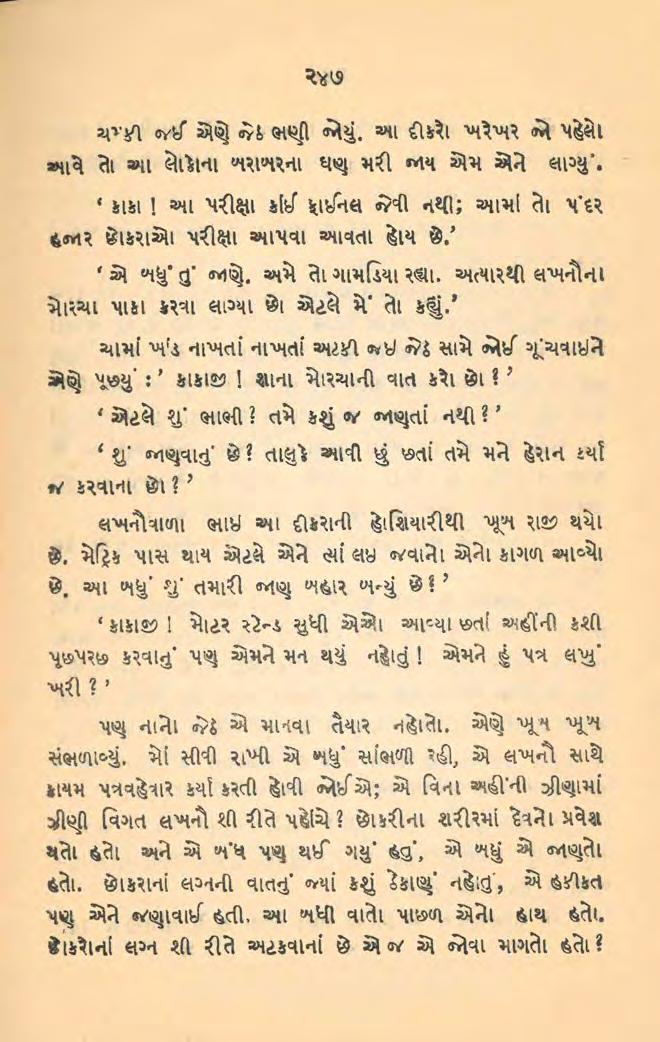 ૨૪૭
ચમ્કી જઈ એણે જેઠ ભણી જોયું. આ દીકરો ખરેખર જો પહેલો
આવે તો આ લોકોના બરાબરના ઘણ મરી જાય એમ એને લાગ્યું.
‘ કાકા ! આ પરીક્ષા કાંઈ ફાઈનલ જેવી નથી; આમાં તો પંદર
હજાર છોકરાઓ પરીક્ષા આપવા આવતા હોય છે.’
‘ એ બધું તું જાણે. અમે તો ગામડિયા રહ્યા. અત્યારથી લખનૌના
મોરચા પાકા કરવા લાગ્યા છો એટલે મેં તો કહ્યું.’
ચામાં ખાંડ નાખતાં નાખતાં અટકી જઇ જેઠ સામે જોઈ ગૂંચવાઇને
એણે પૂછયું :’ કાકાજી ! શાના મોરચાની વાત કરો છો ? ’
‘ એટલે શું ભાભી ? તમે કશું જ જાણતાં નથી ? ’
‘ શું જાણવાનું છે ? તાલુકે આવી છું છતાં તમે મને હેરાન કર્યા
જ કરવાના છો ? ’
લખનૌવાળા ભાઇ આ દીકરાની હોશિયારીથી ખૂબ રાજી થયો
છે. મેટ્રિક પાસ થાય એટલે એને ત્યાં લઇ જવાનો એનો કાગળ આવ્યો
છે. આ બધું શું તમારી જાણ બહાર બન્યું છે ? ’
‘ કાકાજી ! મોટર સ્ટેન્ડ સુધી એઓ આવ્યા છતાં અહીંની કશી
પૂછપરછ કરવાનું પણ એમને મન થયું નહોતું ! એમને હું પત્ર લખું
ખરી ? ’
પણ નાનો જેઠ એ માનવા તૈયાર નહોતો. એણે ખૂબ ખૂબ
સંભળાવ્યું. મોં સીવી રાખી એ બધું સાંભળી રહી, એ લખનૌ સાથે
કાયમ પત્રવહેવાર કર્યા કરતી હોવી જોઈએ; એ વિના અહીંની ઝીણામાં
ઝીણી વિગત લખનૌ શી રીતે પહોંચે ? છોકરીના શરીરમાં દેવનો પ્રવેશ
થતો હતો અને એ બંધ પણ થઈ ગયું હતું, એ બધું એ જાણતો
હતો. છોકરાનાં લગ્નની વાતનું જ્યાં કશું ઠેકાણું નહોતું, એ હકીકત
પણ એને જણાવાઈ હતી. આ બધી વાતો પાછળ એનો હાથ હતો.
છોકરોનાં લગ્ન શી રીતે અટકવાનાં છે એ જ એ જોવા માગતો હતો ?